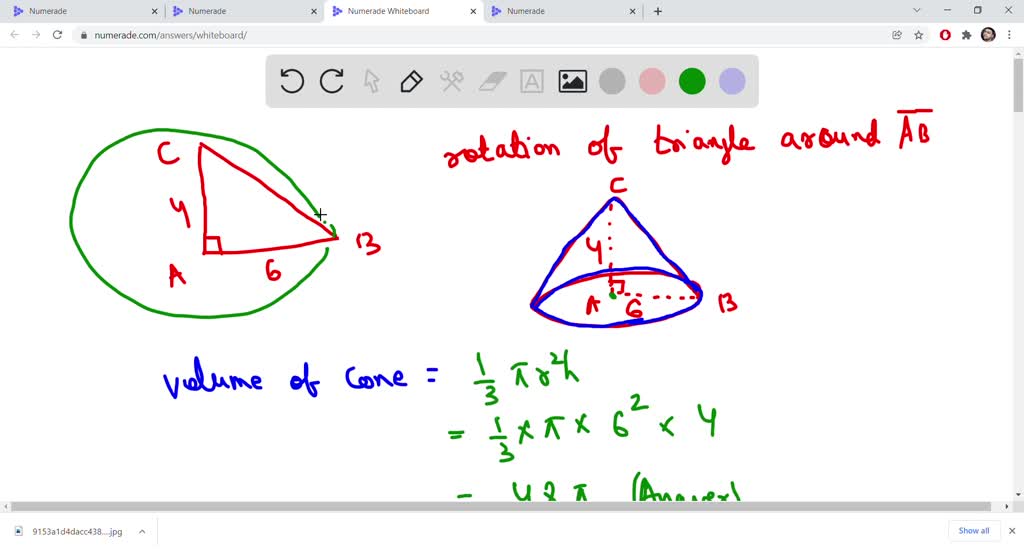 Numerade
Numerade
Numerade Whiteboard
Numerade
numerade.com/answers/whiteboard/
A
rotation of triangle around AB
C
4
A
6
B
C
4
A
6
B
volume of cone = 1/3 πr²h
= 1/3 × π × 6² × 4
= 48π (Answer)
9153a1d4dacc438....jpg
Show all